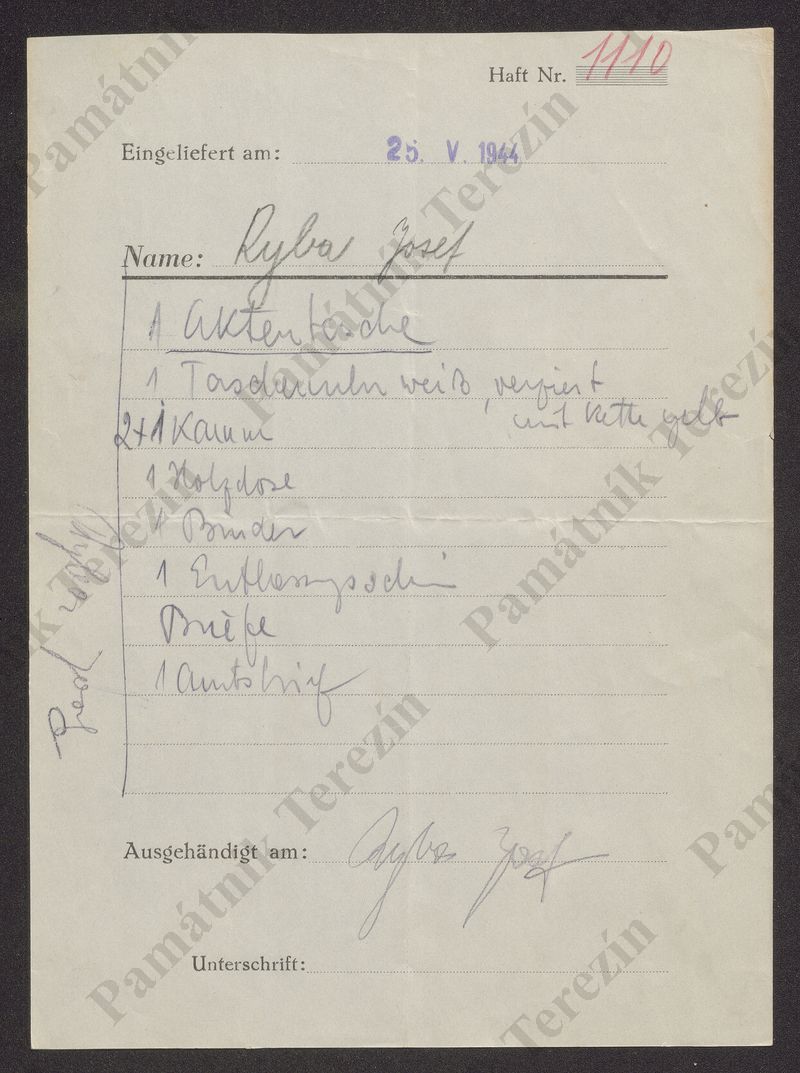 Haft Nr. 1110
Eingeliefert am: 25. V. 1944
Name: Ryba Josef
1 Aktentasche
1 Taschenuhr weiß, verziert
mit Kette gelb
2+1 Kamm
1 Holzdose
1 Binder
1 Entlassungsschein
Briefe
1 Amtsbrief
Ryba Josef
Ausgehändigt am: Ryba Josef
Unterschrift:
Památník Terezín
Památník Terezín
Památník Terezín
Památník Terezín
Památník Terezín